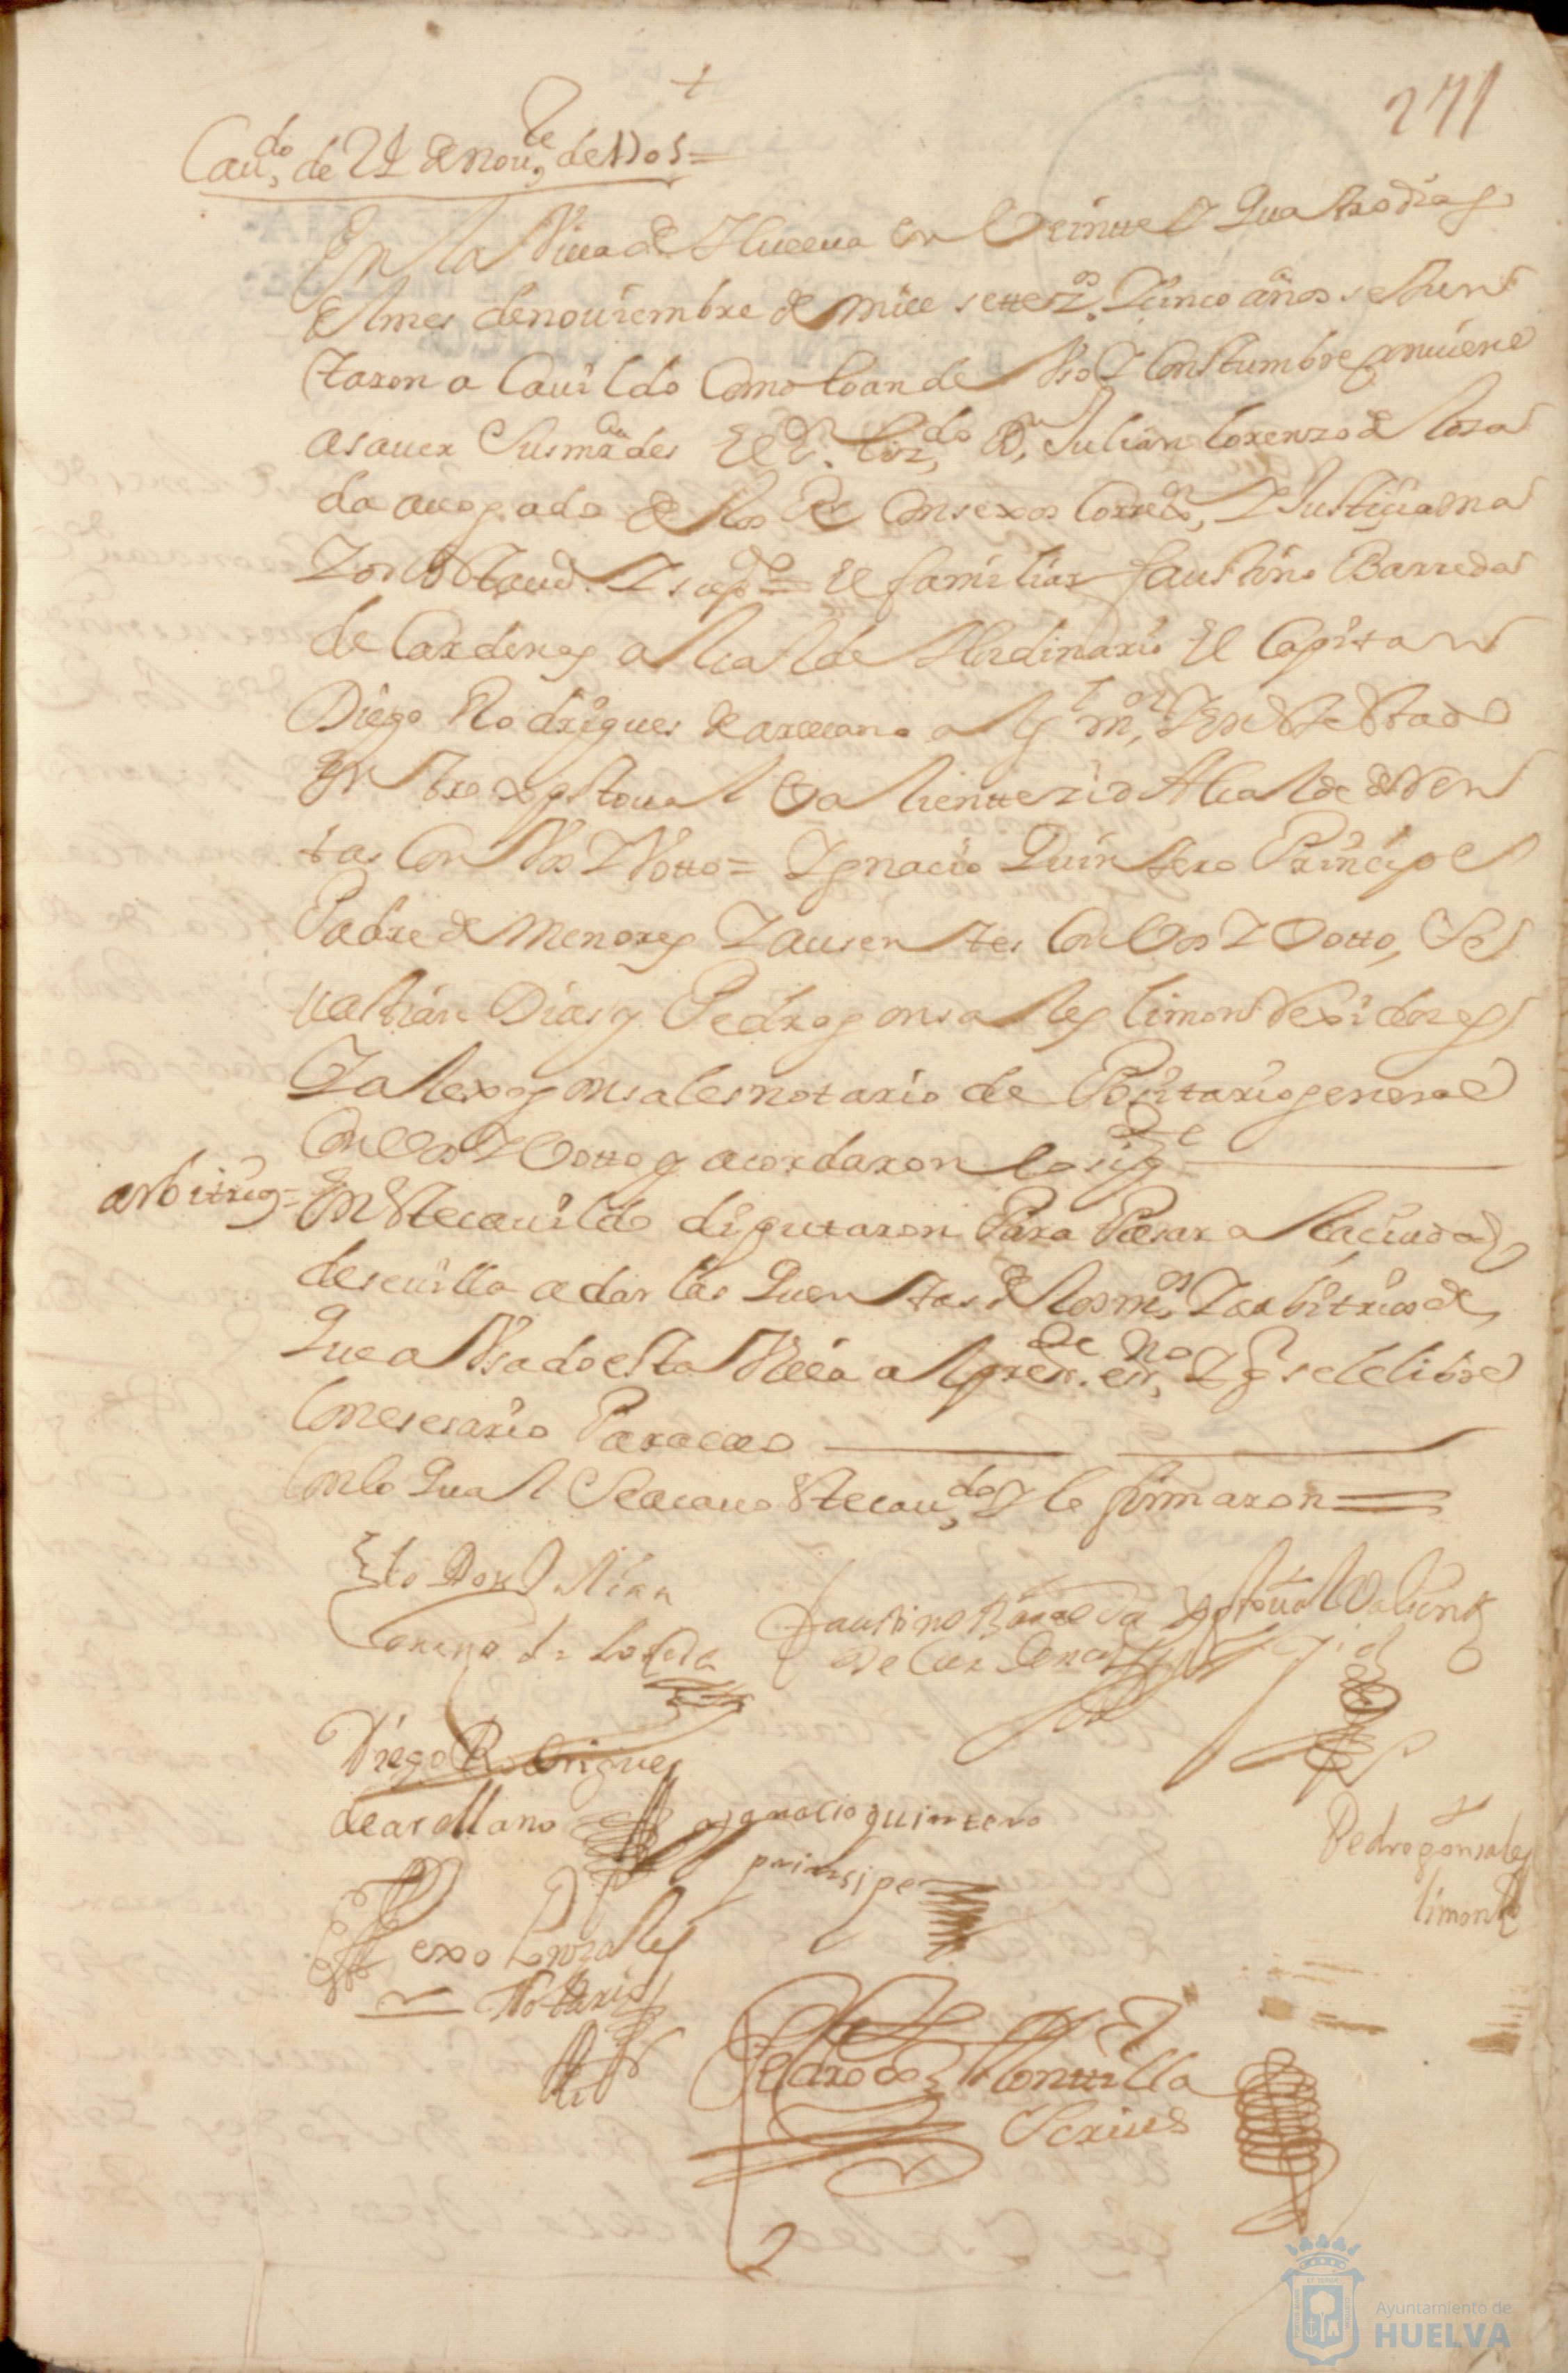 +
271
Cau.do de 24 de nou.e de 1705 =
En la Villa de Huelua en Veintte y quattro dias
del mes de nouiembre de mill settez.os y Cinco años se Jun
taron a Cauildo Como lo an de Vso y Constumbre combiene
asauer Sus mrdes El S.r liz.do D.n Julian lorenzo de losa
da auogado de los R.s Consexos Corre.or y Justiçia ma
Yor desta uª y su
El familiar faustino Barreda
de Cardenas alcalde Hordinario El Capitan
Diego Rodrigues de arellano alg.l m.or y en este Estado
entro xptoual Valientte zid Alcalde de Ren
tas Con Vos y Votto = Ygnacio Quintero Principe
Padre de Menores y ausentes Con Vos y Votto, Se
uastian Dias y Pedro gonsales limon Rexidores
Y alexo gonsales notario de Posittario general
Con Vos y Votto y acordaron lo sig.te
arbitrios = En este cauildo diputaron Para Pasar a la ciudad
de seuilla a dar las quentas de los m.os y arbitrios de
que a Vsado esta Villa al press.te es.no y q se le libre
lo nesesario Para ello
Con lo qual Se acauo este cau.do y lo firmaron =
Lizdo Don Julian
Lorenzo de Losada
faustino Barreda
de Cardenas
xptoual Valiente
zid
Diego Rodrigues
de arellano
ygnacio quintero
prinsipe
Pedro gonsales
limon
Alexo Gonzales
Notario
Pedro de Montilla
Scriuº
Ayuntamiento de
HUELVA